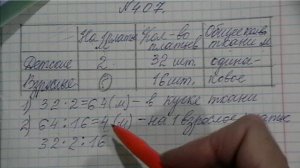 №407.
На 1 платье Кол-во платьев Общее кол. ткани м
Детские 2 32 шт. одина-
Взрослые ? 16 шт. ковое
1) 32·2=64(м) – в куске ткани
2) 64:16=4(м) – на 1 взрослое платье
32·2:16